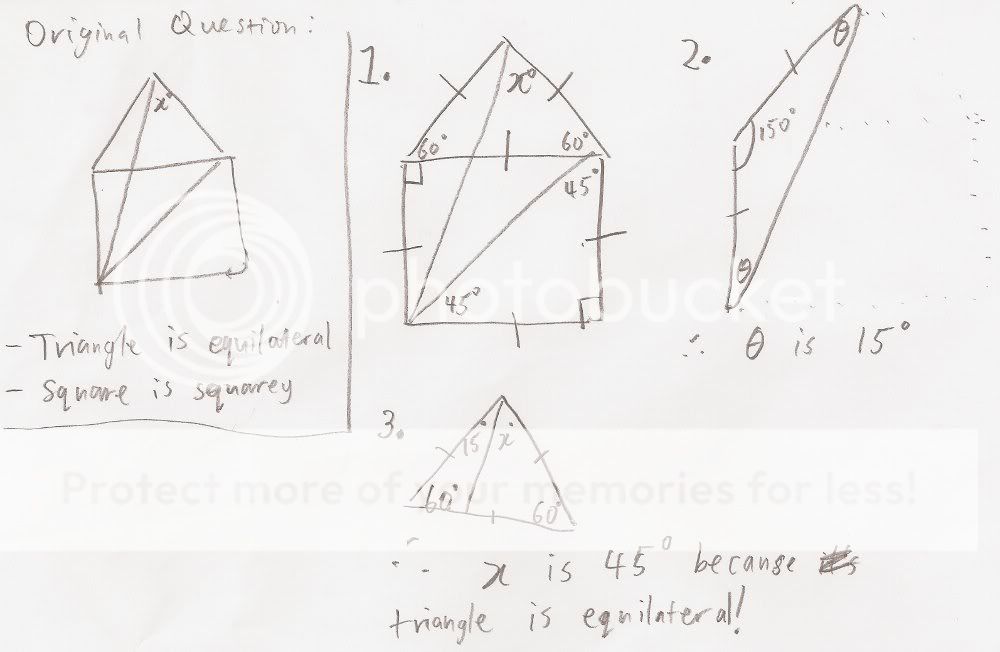 Original Question:
x°
- Triangle is equilateral
- Square is squarey
1.
x°
60°
60°
45°
45°
2.
θ
150°
θ
∴ θ is 15°
3.
15°
x°
60°
60°
∴ x is 45° because
triangle is equilateral!
photobucket
Protect more of your memories for less!